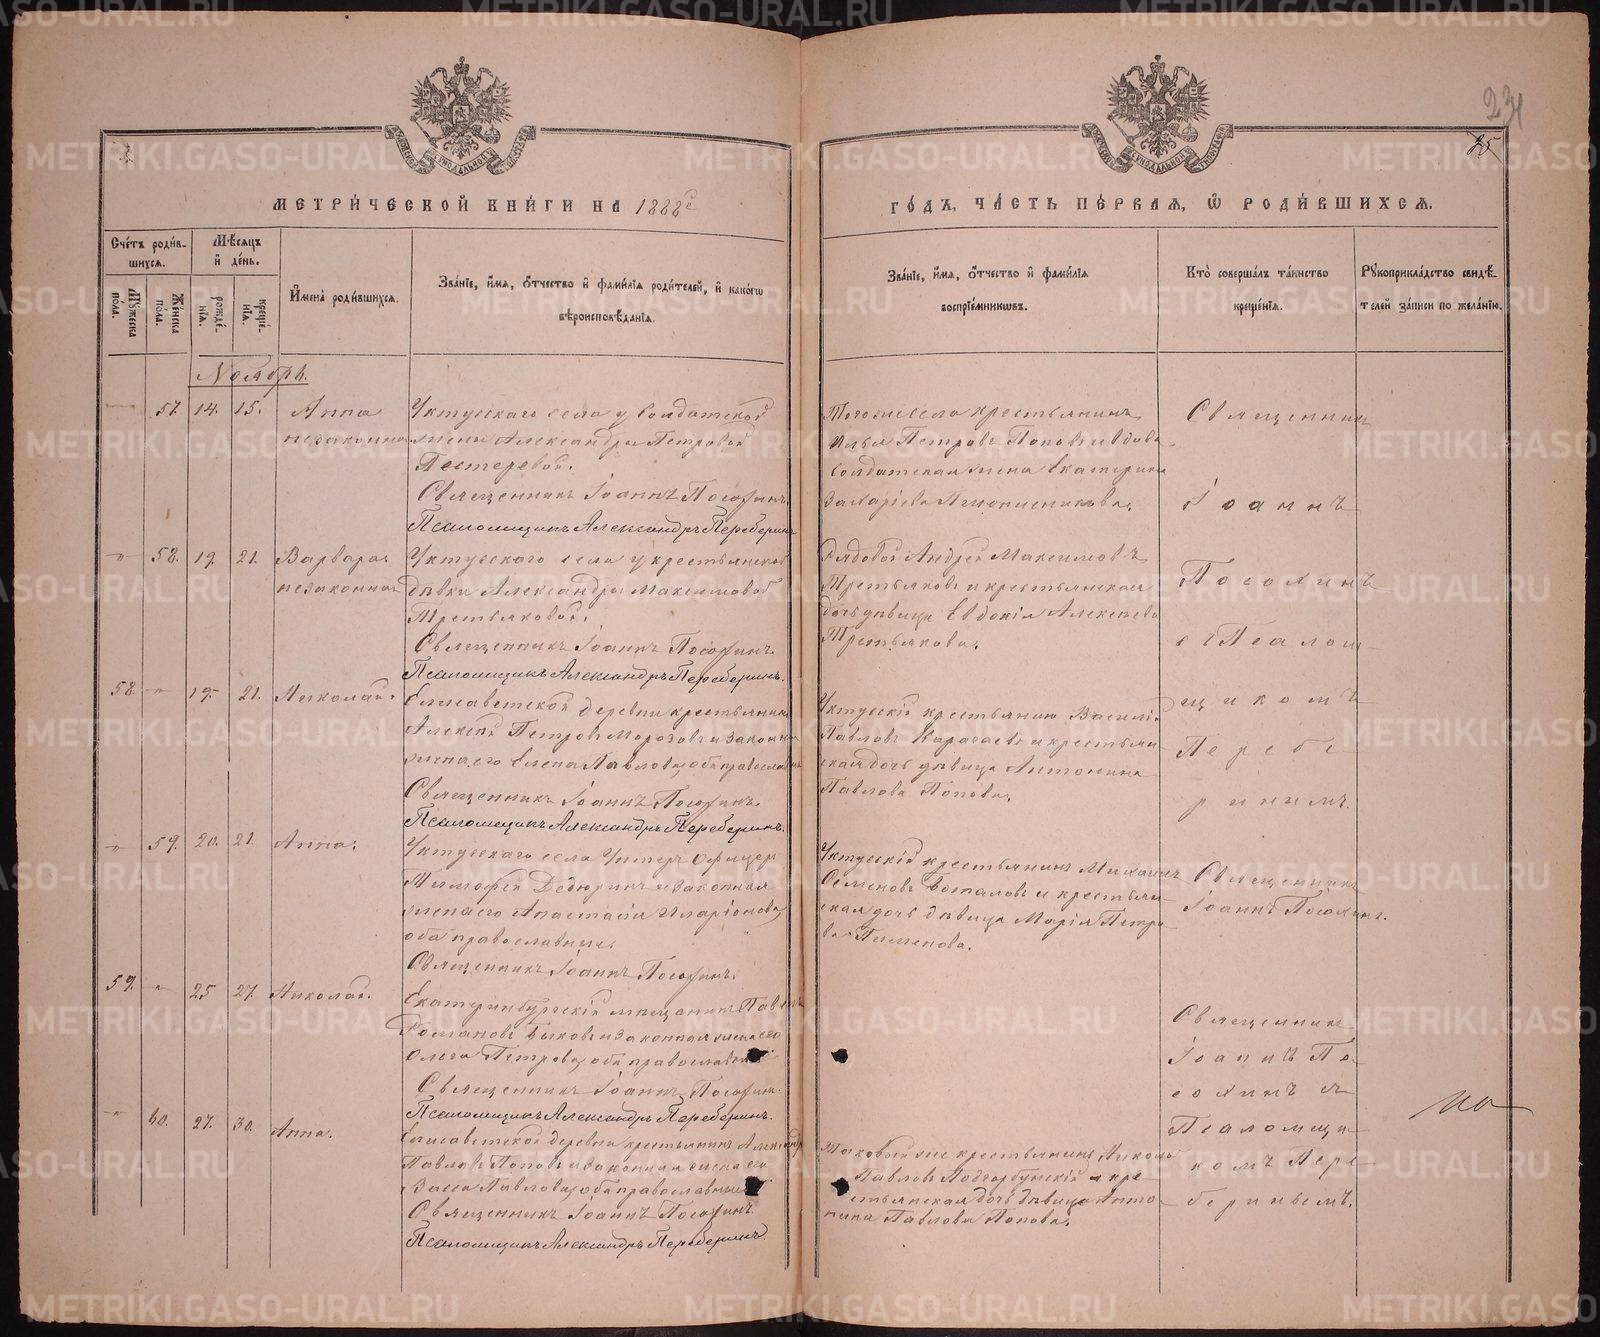 231
25
МЕТРИЧЕСКОЙ КНИГИ НА 1888 г
ГОДЪ, ЧАСТЬ ПЕРВАЯ, Ѡ РОДИВШИХСЯ.
Счетъ родив-
шихся.
Мѣсяцъ
и день.
Мужеска
пола.
Женска
пола.
рожде-
нія.
креще-
нія.
Имена родившихся.
Званіе, имя, отчество и фамилія родителей, и какогѡ
вѣроисповѣданія.
Званіе, имя, отчество и фамилія
воспріемниковъ.
Кто совершалъ таинство
крещенія.
Рукоприкладство свидѣ-
телей записи по желанію.
Ноябрь.
57. 14. 15. Анна
незаконно
Уктусскаго села у солдатской
жены Александры Петровой
Пестеревой.
Священникъ Іоаннъ Посохинъ.
Псаломщикъ Александръ Переберинъ
Тогоже села крестьянинъ
Илья Петровъ Поповъ и вдова
солдатская жена Екатерина
Захаріева
Священник
Іоаннъ
Посохинъ
съ Псалом-
щикомъ
Перебе-
ринимъ.
" 58. 19. 21. Варвара.
незаконная
Уктусского села у крестьянской
дѣвки Александры Максимовой
Третьяковой.
Священникъ Іоаннъ Посохинъ.
Псаломщикъ Александръ Переберинъ.
Рядовой Андрей Максимовъ
Третьяковъ и крестьянская
дочь дѣвица Евдокія Алексѣева
Третьякова.
58. " 19. 21. Николай.
Елисаветской деревни крестьянинъ
Алексѣй Петровъ Морозовъ и законная
жена его Елена Павлова, оба православн
Священникъ Іоаннъ Посохинъ.
Псаломщикъ Александръ Переберинъ.
Уктусскій крестьянинъ Василій
Павловъ Карасаевъ и крестьян
ская дочь дѣвица Антонина
Павлова Попова.
" 59. 20. 21. Анна.
Уктусскаго села Унтеръ Офицер
Тимофей Дедюринъ и законная
жена его Анастасія Иларіонова,
оба православные.
Священникъ Іоаннъ Посохинъ.
Уктусскій крестьянинъ Михаилъ
Семеновъ Боталовъ и крестьян
ская дочь дѣвица Марія Петро
ва Пименова.
Священникъ
Іоаннъ Посохинъ.
59. " 25 27. Николай.
Екатеринбургскій мѣщанинъ Павелъ
Романовъ Быковъ и законная жена его
Ольга Петрова, оба православные
Священникъ Іоаннъ Посохинъ.
Псаломщикъ Александръ Переберинъ.
Священник
Іоаннъ По-
сохинъ съ
Псаломщи-
комъ Пере-
беринымъ.
" 60. 27. 30. Анна.
Елисаветской деревни крестьянинъ Александръ
Павловъ Поповъ и законная жена его
Васса Павлова, оба православные
Священникъ Іоаннъ Посохинъ
Псаломщикъ Александръ Переберинъ.
Таковый же крестьянинъ Никола
Павловъ Подгорбунскій и кре-
стьянская дочь дѣвица Анто-
нина Павлова Попова.
METRIKI.GASO-URAL.RU